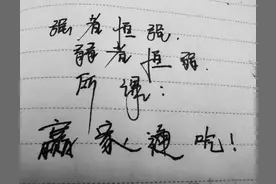 强者恒强.
弱者恒弱.
所谓:
赢家通吃!